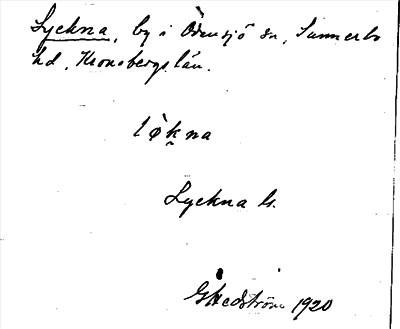 Lyckna, by i Odensjö sn, Sunnerbo
hd, Kronobergs län.
lø̀kna
Lyckna G.
G Hedström 1920